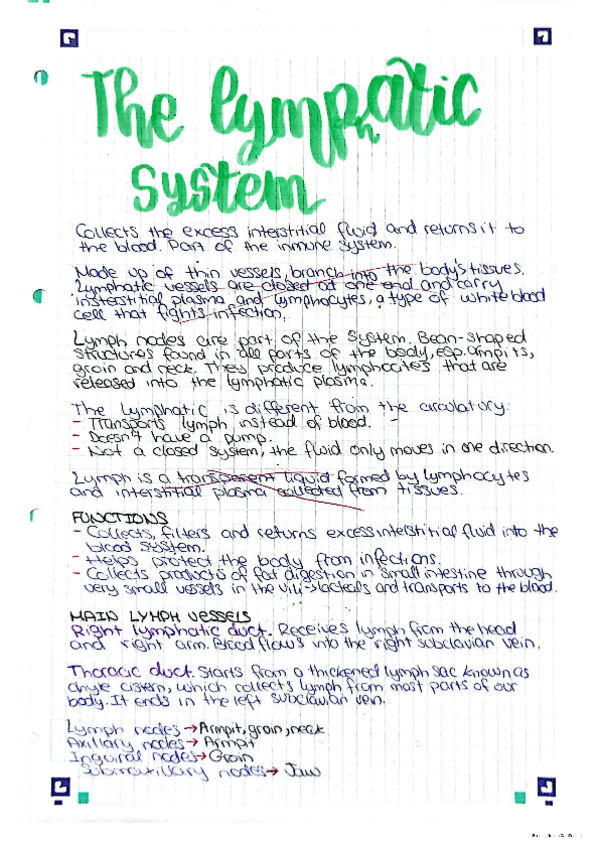 The lymphatic
system
Collects the excess interstitial fluid and returns it to
the blood. Part of the inmune system.
Made up of thin vessels, branch into the body's tissues.
Lymphatic vessels are closed at one end and carry
insterstitial plasma and lymphocytes, a type of white blood
cell that fights infection.
Lymph nodes are part of the system. Bean-shaped
structures found in all parts of the body, esp. ampits,
groin and neck. They produce lymphocites that are
released into the lymphatic plasma.
The lymphatic is different from the circulatory:
- Transports lymph instead of blood.
- Doesn't have a pump.
- Not a closed system, the fluid only moves in one direction.
Lymph is a transparent liquid formed by lymphocytes
and interstitial plasma collected from tissues.
FUNCTIONS
- Collects, filters and returns excess interstitial fluid into the
blood system.
- Helps protect the body from infections.
- Collects products of fat digestion in small intestine through
very small vessels in the villi-lacteals and transports to the blood.
MAIN LYMPH VESSELS
Right lymphatic duct. Receives lymph from the head
and right arm. Blood flows into the right subclavian vein.
Thoracic duct. Starts from a thickened lymph sac known as
chyle cistern, which collects lymph from most parts of our
body. It ends in the left subclavian vein.
Lymph nodes → Armpit, groin, neck
Axillary nodes → Armpit
Inguinal nodes → Groin
Submaxillary nodes → Jaw